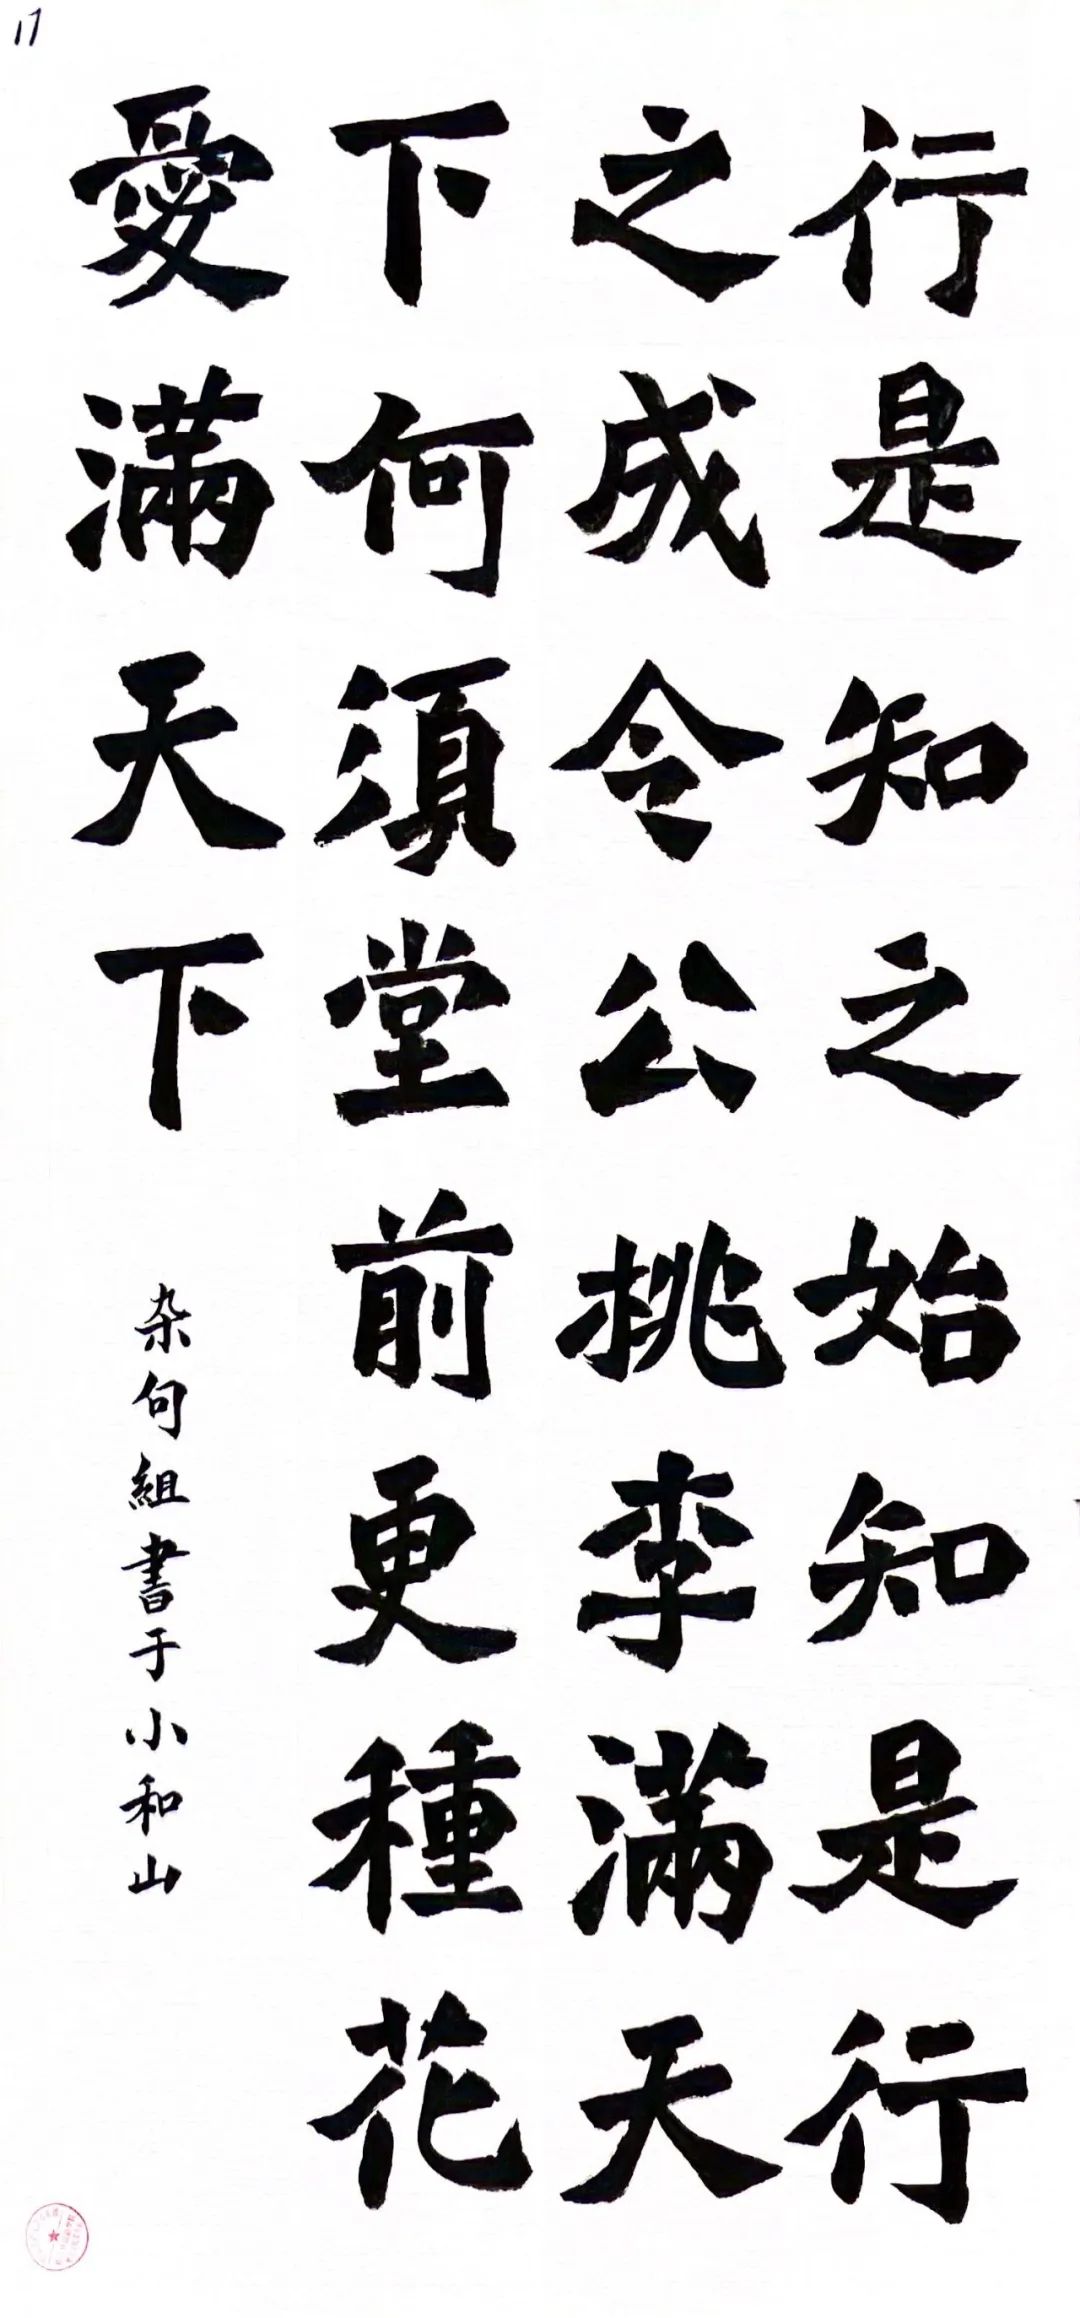 17
行是知之始知是行
之成令公桃李滿天
下何須堂前更種花
愛滿天下
杂句組書于小和山